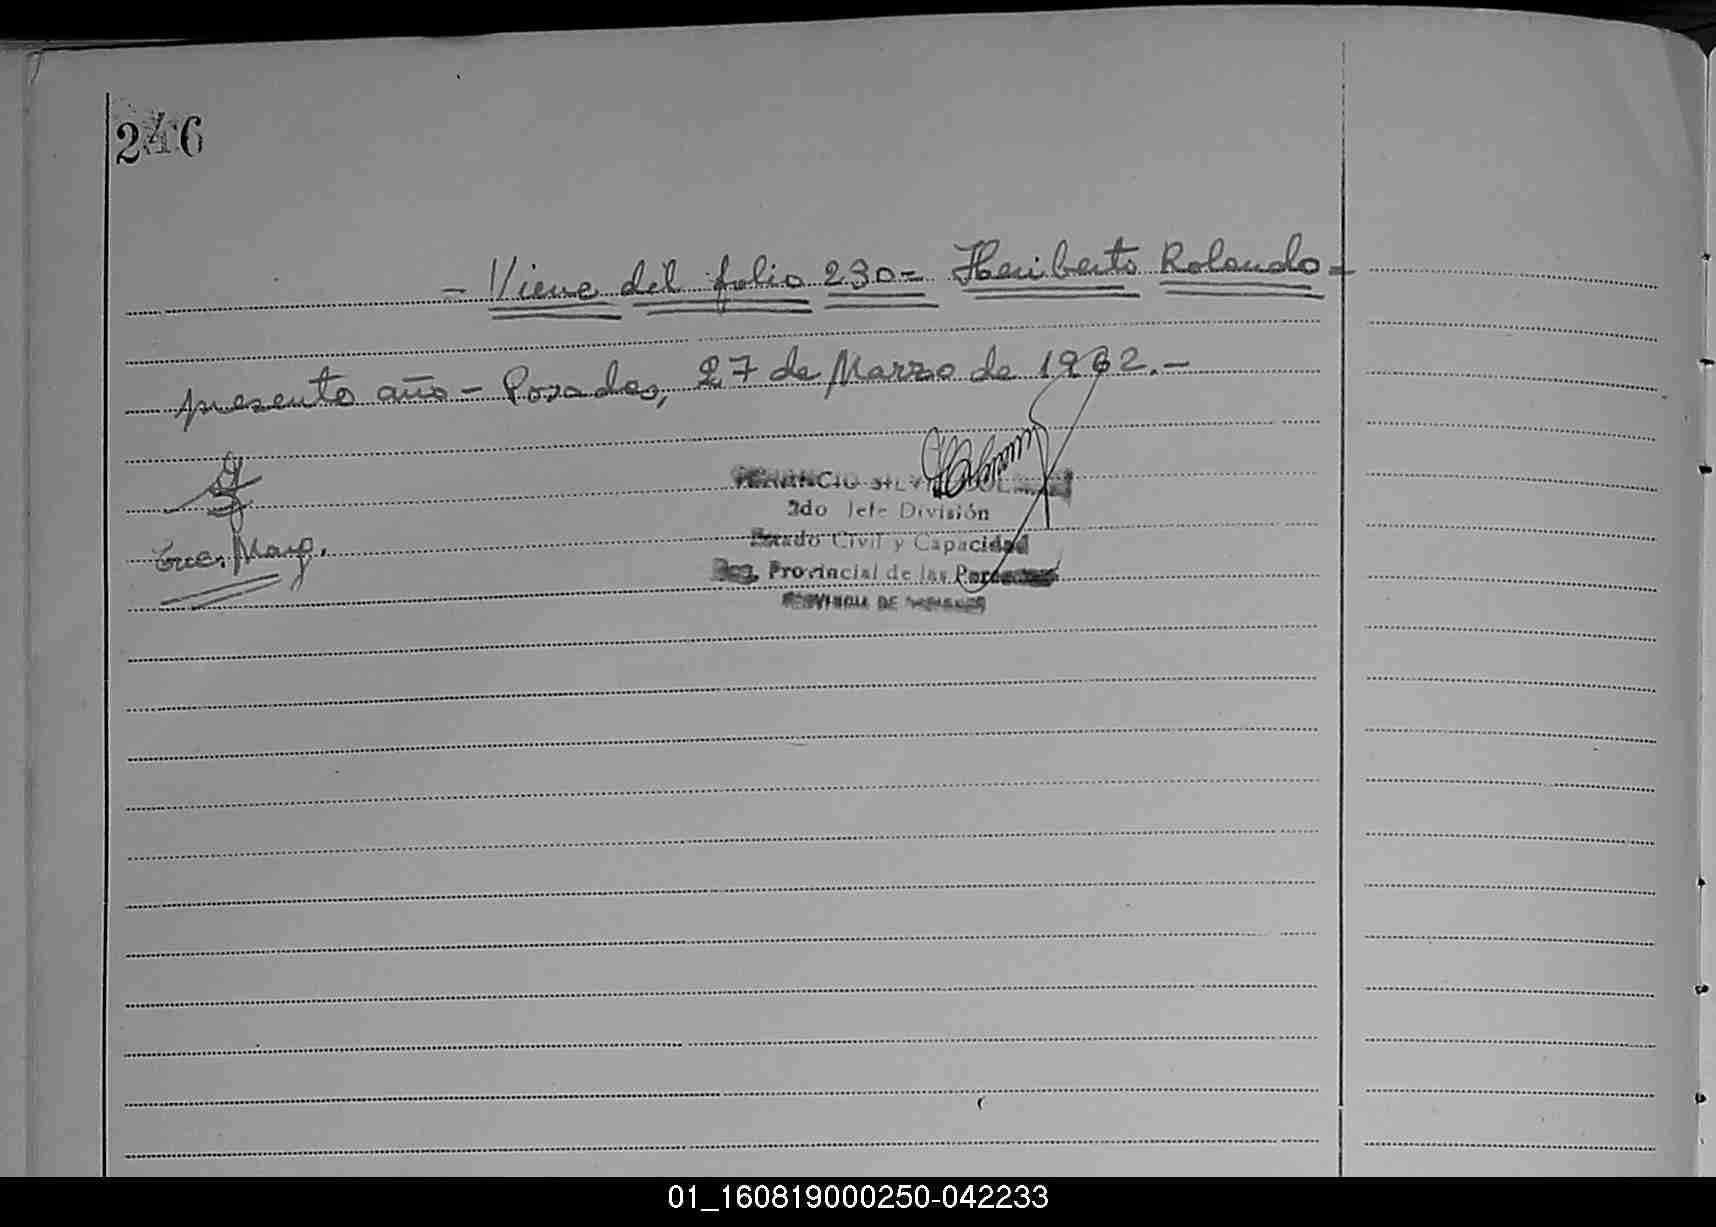 246
- Viene del folio 230 - Heriberto Rolando -
presente año - Posadas, 27 de Marzo de 1962.-
2do Jefe División
Estado Civil y Capacidad
Reg. Provincial de las Personas
PROVINCIA DE MISIONES
01_160819000250-042233